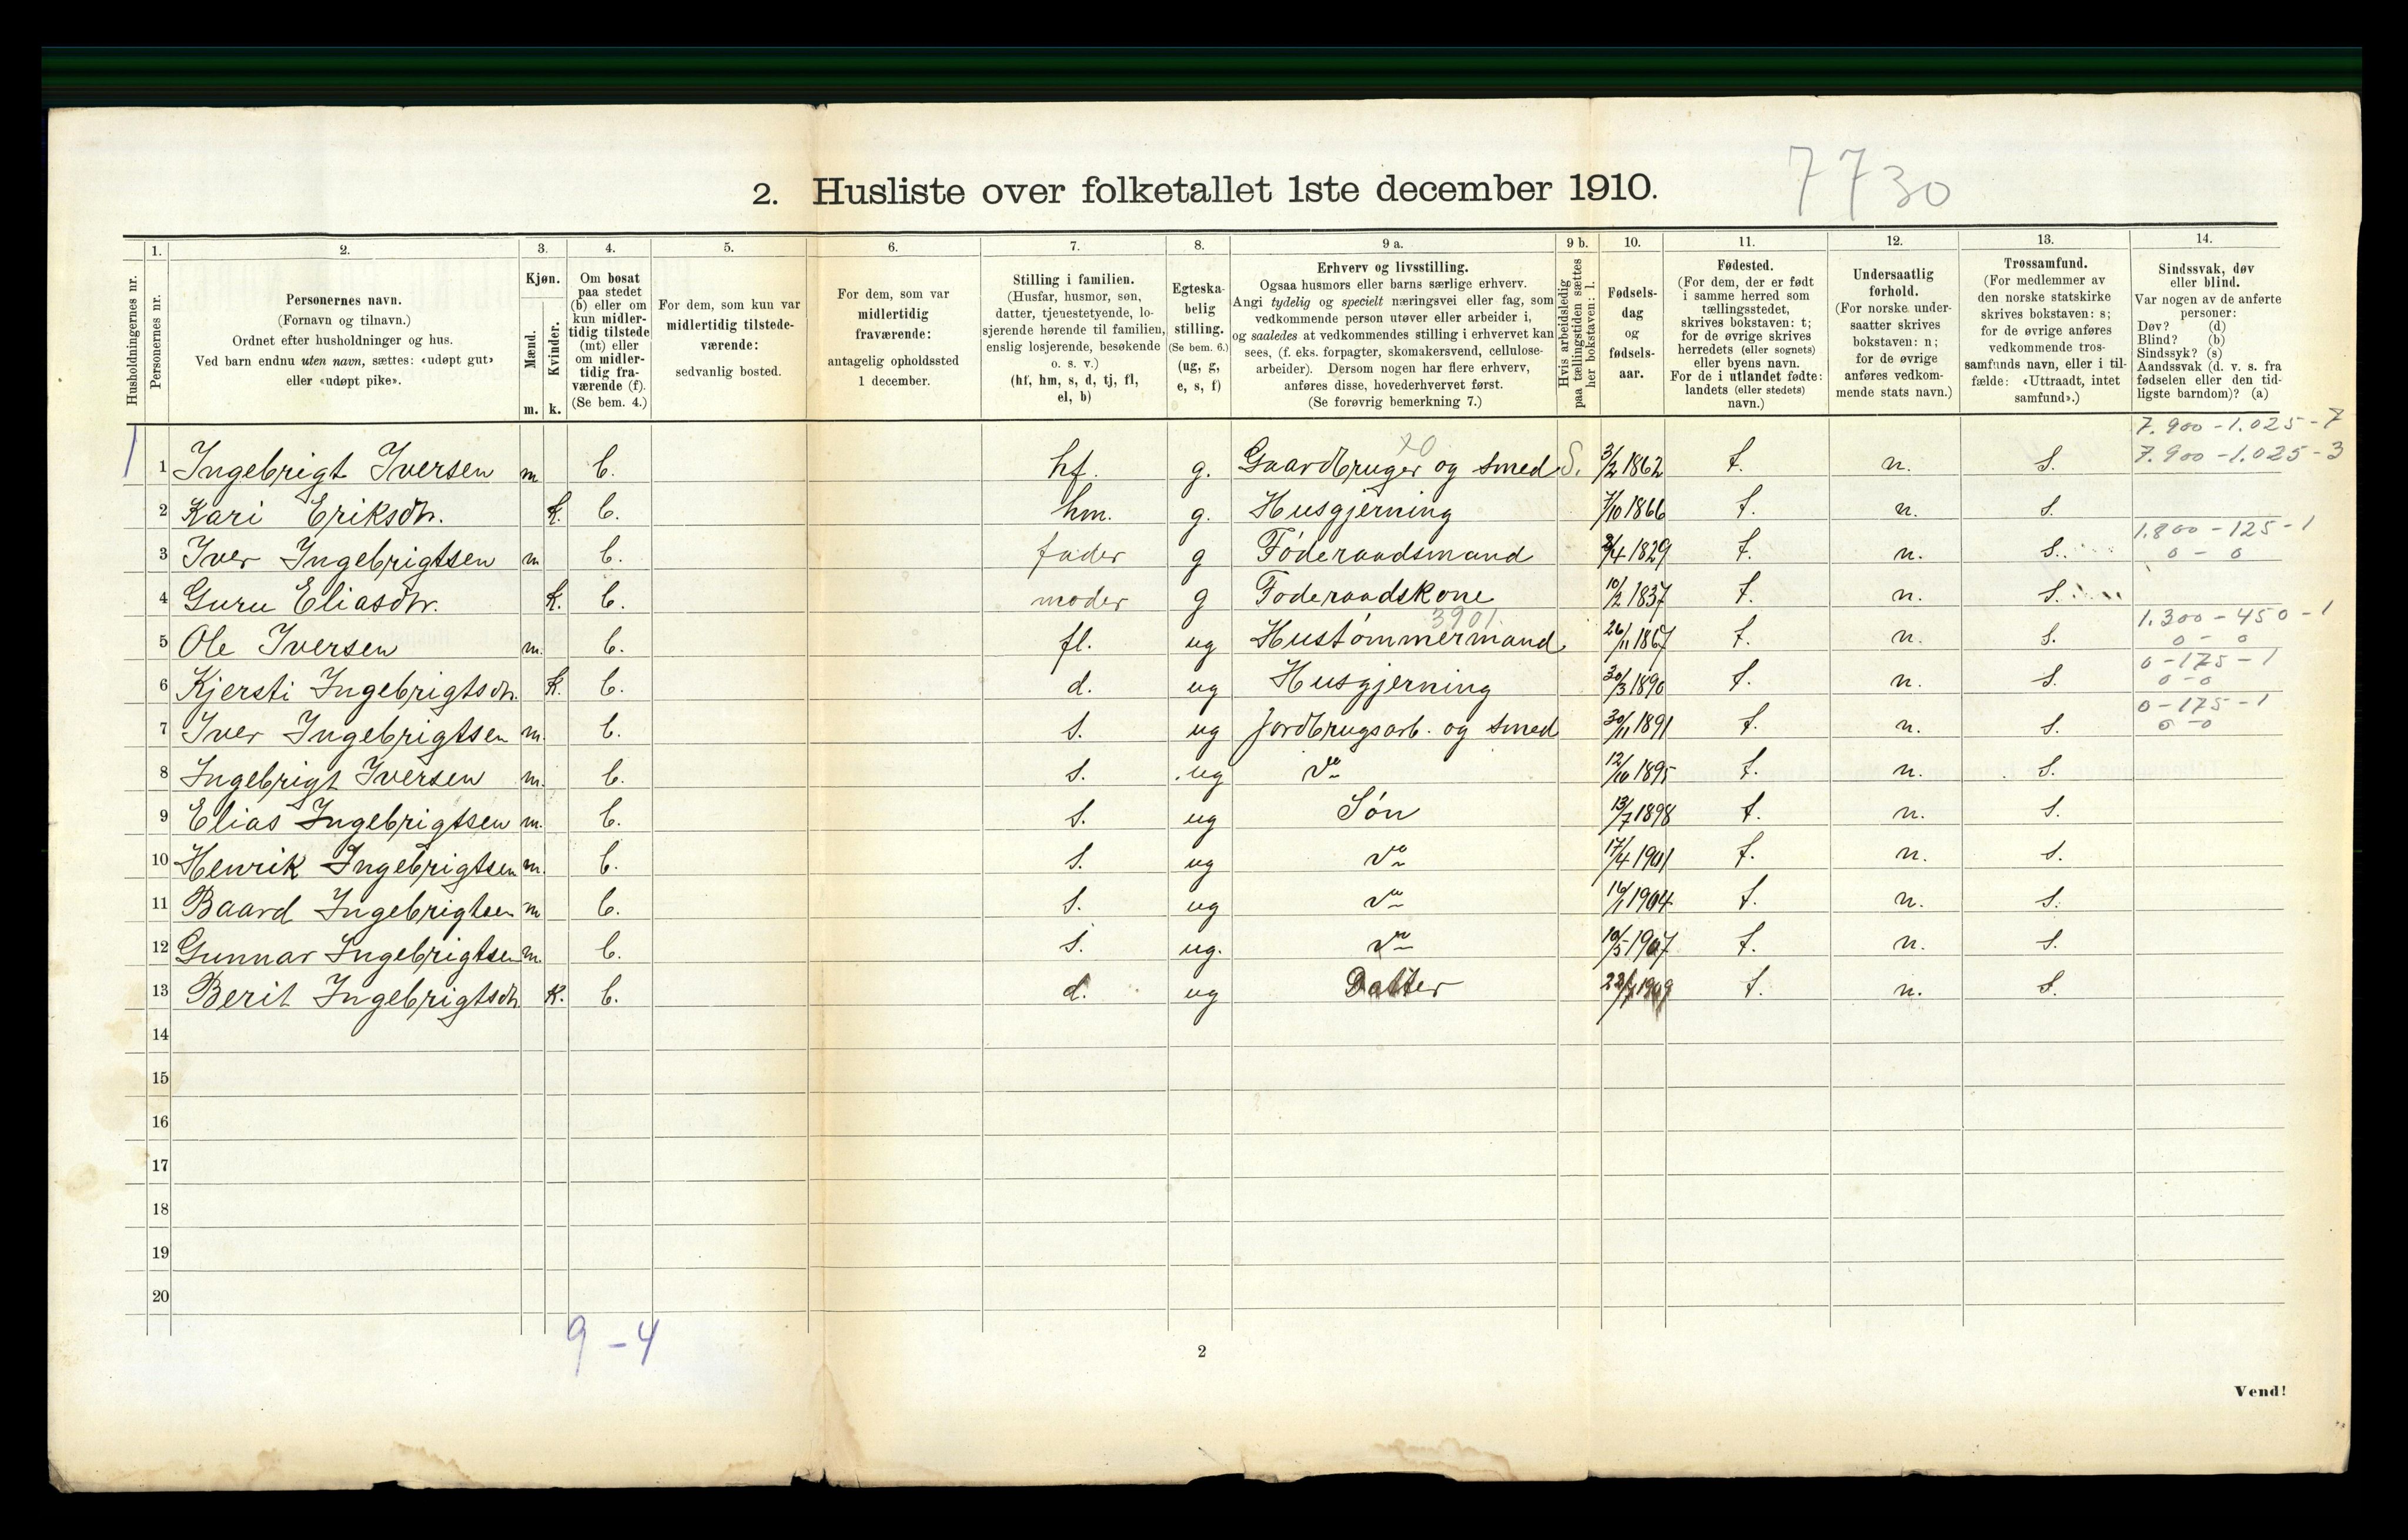 7730
2. Husliste over folketallet 1ste december 1910.
1. 2. 3. 4. 5. 6. 7. 8. 9 a. 9 b. 10. 11. 12. 13. 14.
Husholdningernes nr.
Personernes nr.
Personernes navn.
(Fornavn og tilnavn.)
Ordnet efter husholdninger og hus.
Ved barn endnu uten navn, sættes: «udøpt gut»
eller «udøpt pike».
Kjøn.
Mænd.
Kvinder.
m. k.
Om bosat
paa stedet
(b) eller om
kun midler-
tidig tilstede
(mt) eller
om midler-
tidig fra-
værende (f).
(Se bem. 4.)
For dem, som kun var
midlertidig tilstede-
værende:
sedvanlig bosted.
For dem, som var
midlertidig
fraværende:
antagelig opholdssted
1 december.
Stilling i familien.
(Husfar, husmor, søn,
datter, tjenestetyende, lo-
sjerende hørende til familien,
enslig losjerende, besøkende
o. s. v.)
(hf, hm, s, d, tj, fl,
el, b)
Egteska-
belig
stilling.
(Se bem. 6.)
(ug, g,
e, s, f)
Erhverv og livsstilling.
Ogsaa husmors eller barns særlige erhverv.
Angi tydelig og specielt næringsvei eller fag, som
vedkommende person utøver eller arbeider i,
og saaledes at vedkommendes stilling i erhvervet kan
sees, (f. eks. forpagter, skomakersvend, cellulose-
arbeider). Dersom nogen har flere erhverv,
anføres disse, hovederhvervet først.
(Se forøvrig bemerkning 7.)
Hvis arbeidsledig
paa tællingstiden sættes
her bokstaven: l.
Fødsels-
dag
og
fødsels-
aar.
Fødested.
(For dem, der er født
i samme herred som
tællingsstedet,
skrives bokstaven: t;
for de øvrige skrives
herredets (eller sognets)
eller byens navn.
For de i utlandet fødte:
landets (eller stedets)
navn.)
Undersaatlig
forhold.
(For norske under-
saatter skrives
bokstaven: n;
for de øvrige
anføres vedkom-
mende stats navn.)
Trossamfund.
(For medlemmer av
den norske statskirke
skrives bokstaven: s;
for de øvrige anføres
vedkommende tros-
samfunds navn, eller i til-
fælde: «Uttraadt, intet
samfund».)
Sindssvak, døv
eller blind.
Var nogen av de anførte
personer:
Døv? (d)
Blind? (b)
Sindssyk? (s)
Aandssvak (d. v. s. fra
fødselen eller den tid-
ligste barndom)? (a)
7.900-1.025-7
1 1 Ingebrigt Iversen m b. hf. g. Gaardbruger og smed S. 3/2 1862 t. n. s. 7.900-1.025-3
2 Kari Eriksdtr. k. b. hm. g. Husgjerning 7/10 1866 t. n. s.
1.800-125-1
3 Iver Ingebrigtsen m b. fader g Føderaadsmand /4 1829 t. n. s. 0-0
4 Guru Eliasdtr. k. b. moder g Føderaadskone 10/2 1837 t. n. s.
3901. 1.300-450-1
5 Ole Iversen m. b. fl. ug Hustømmermand 26/11 1867 t. n. s. 0-0
0-175-1
6 Kjersti Ingebrigtsdtr. k. b. d. ug Husgjerning 30/3 1890 t. n. s. 0-0
0-175-1
7 Iver Ingebrigtsen m. b. s. ug Jordbrugsarb. og smed 30/11 1891 t. n. s. 0-0
8 Ingebrigt Iversen m. b. s. ug do 12/10 1895 t. n. s.
9 Elias Ingebrigtsen m. b. s. ug Søn 13/7 1898 t. n. s.
10 Henrik Ingebrigtsen m. b. s. ug do 17/4 1901 t. n. s.
11 Baard Ingebrigtsen m b. s. ug do 16/1 1904 t. n. s.
12 Gunnar Ingebrigtsen m. b. s. ug. do 10/5 1907 t. n. s.
13 Berit Ingebrigtsdtr. k. b. d. ug Datter 1909 t. n. s.
14
15
16
17
18
19
20
9-4
2
Vend!